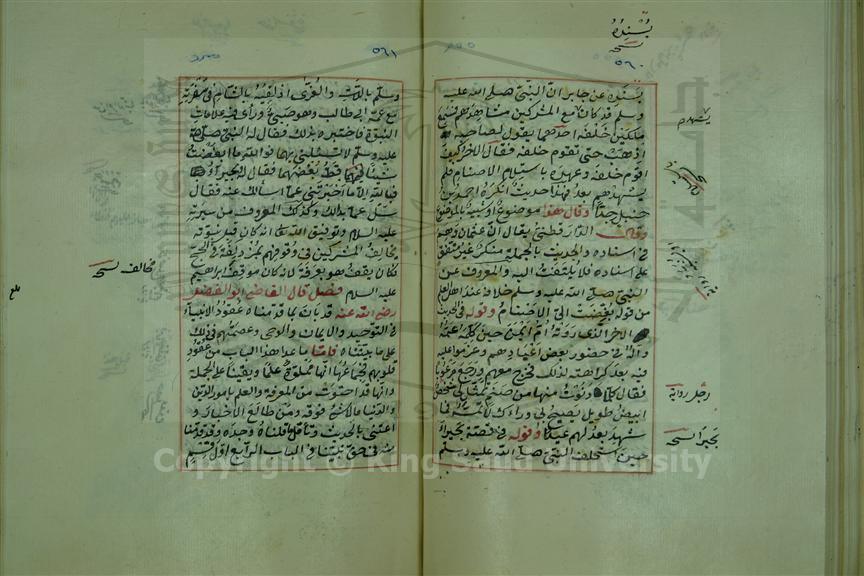 بسنده
نسخة
٥٦٠
بسنده عن جابر ان النبي صلى الله عليه
وسلم قد كان مع المشركين مشاهدهم فسمع
ملكين خلفه احدهما يقول لصاحبه
اذهب حتى تقوم خلفه فقال الاخر كيف
اقوم خلفه وعهده باستلام الاصنام فلم
يشهدهم بعد فهذا حديث انكره احمد بن
حنبل جدا وقال هذا موضوع او شبيه بالموضوع
وقال الدارقطني يقال ان عثمان وهم
في اسناده والحديث بالجملة منكر غير متفق
على اسناده فلا يلتفت اليه والمعروف عن
النبي صلى الله عليه وسلم خلافه عند اهل العلم
من قوله بغضت الي الاصنام وقوله في الحديث
الاخر الذي روته ام ايمن حين كلمه عمه
واله في حضور بعض اعيادهم وعزموا عليه
فيه بعد كراهته لذلك فخرج معهم ورجع مرعوبا
فقال كلما دنوت منها من صنم تمثل لي شخص
ابيض طويل يصيح بي وراءك لا تمسه فما
شهد بعد لهم عيدا وقوله في قصة بحيراء
حين استحلف النبي صلى الله عليه وسلم
يشهدهم
رجل رواية
بحيرا نسخة
٥٦١
وسلم باللات والعزى اذ لقيه بالشام في سفرته
مع عمه ابي طالب وهو صبي وراى فيه علامات
النبوة فاختبره بذلك فقال له النبي صلى الله
عليه وسلم لا تسئلني بهما فوالله ما ابغضت
شيئا قط بغضهما فقال له بحيراء
فبالله الا ما اخبرتني عما اسالك عنه فقال
سل عما بدا لك وكذلك المعروف من سيرته
عليه السلام وتوفيق الله له انه كان قبل نبوته
يخالف المشركين في وقوفهم بمزدلفة في الحج
فكان يقف هو بعرفة لانه كان موقف ابراهيم
عليه السلام فصل قال القاضي ابو الفضل
رضي الله عنه قد بان بما قدمناه عقود الانبياء
في التوحيد والايمان والوحي وعصمتهم في ذلك
على ما بيناه فاما ما عدا هذا الباب من عقود
قلوبهم فجماعها انها مملوة علما ويقينا على الجملة
وانها قد احتوت من المعرفة والعلم بامور الدين
والدنيا ما لا شيء فوقه ومن طالع الاخبار و
اعتنى بالحديث وتامل ما قلناه وجده وقد قدمنا
منه في حق نبينا في الباب الرابع اول قسم
مخالف نسخة
Copyright © King Saud University